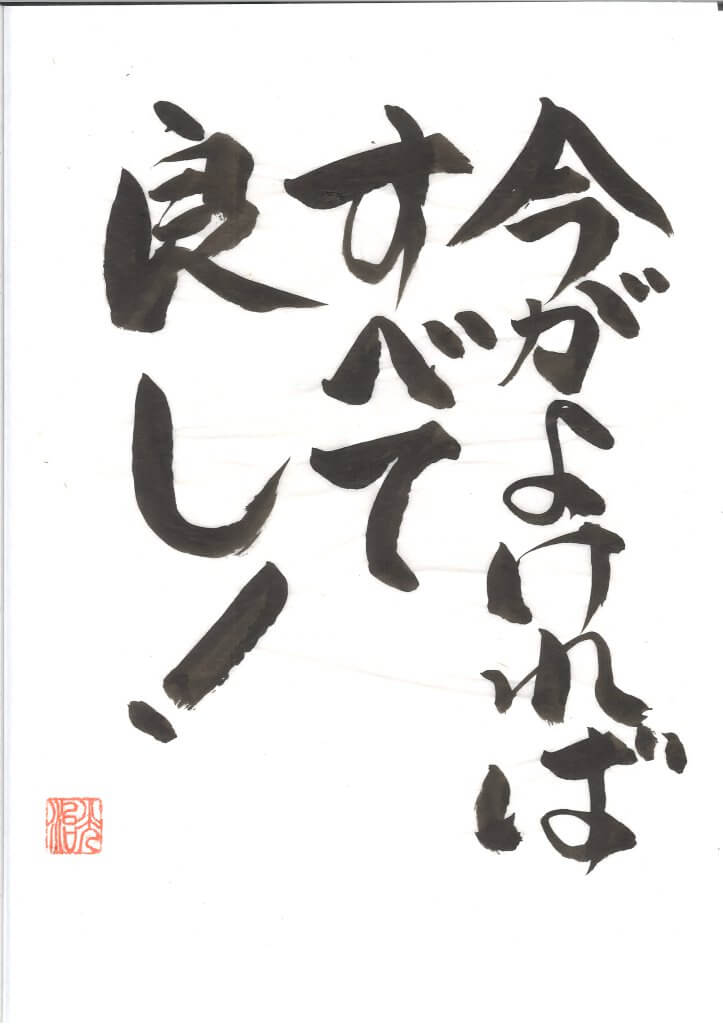 今がよければ
すべて
良し!